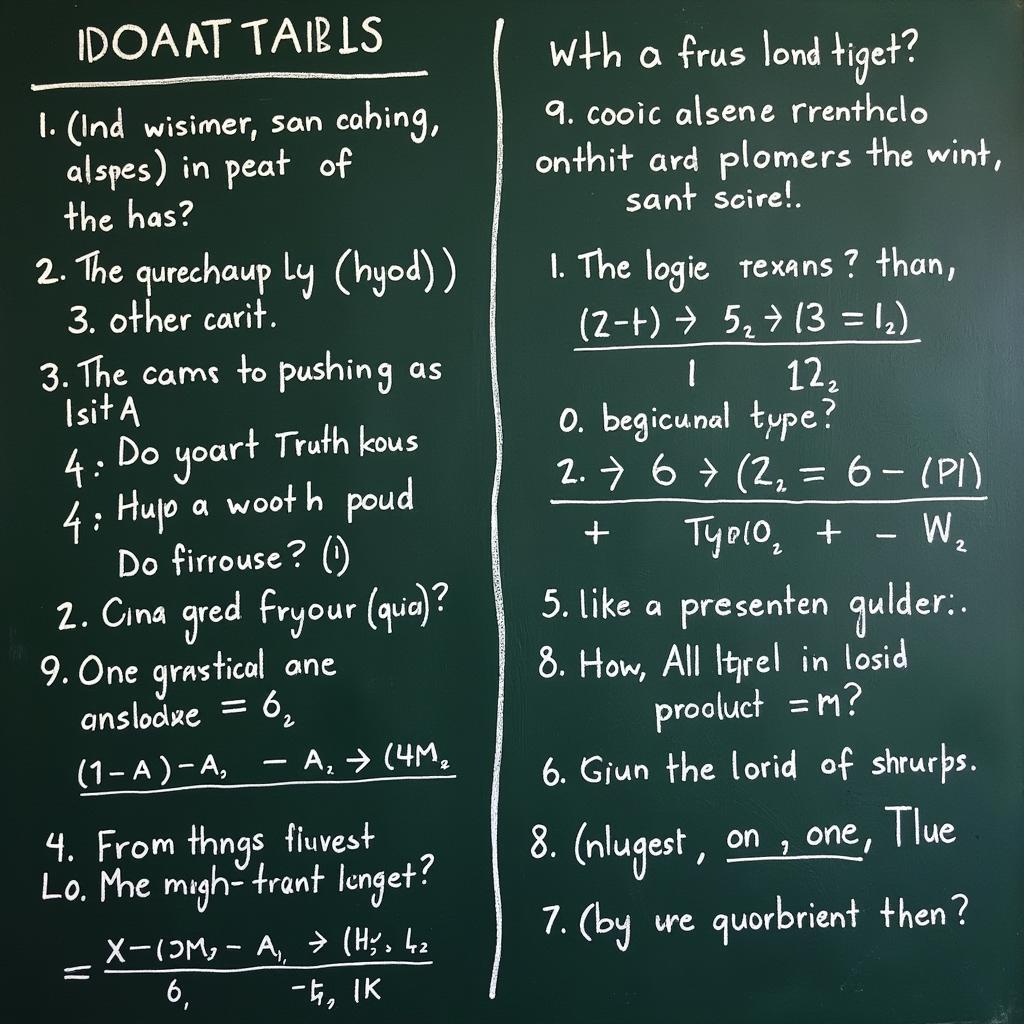 IDOAAT TAIBLS
1. (Ind wisimer, san cahing,
alspes) in peat of
the has?
2. The qurechaup Ly (hyod))
3. other carit.
3. The cams to pushing as
Isit A
4: Do yoart Truth kous
4: Hujo a woot h poud
Do firrouse? (i)
2. Cina gred fryour (quia)?
9. One grastical ane
anslodxe = 6₂
(1-A)-A, - A₂ → (4M₂
4. From thngs fluvest
Lo. Mhe migh-trant lenget?
= X-(ƆM, - A,, →
6, IK
Wth a frus lond tiget?
9. cooic alsene rrenthclo
onthit ard plomers the wint,
sant scire!.
1. The logie texans? than,
(2-t) → 5₂ → (3 = 1₂)
1 12₂
0. begicunal type?
2. → 6 → (2₂ = 6 - (PI)
+ Typ10₂ + - W₂
5. like a presenten gulder:.
8. How, All ltgrel in losid
product = m?
6. Giun the lorid of shrurps.
8. (nlugest, on, one, Tlue
7. (by ure quorbrient then?